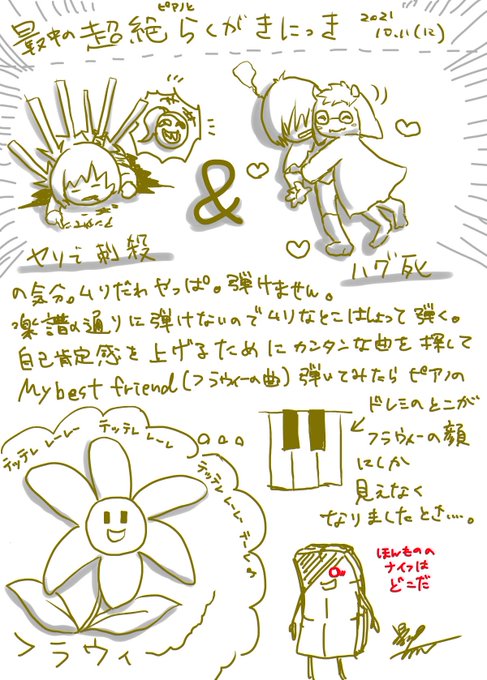 ピアノと
最中の超絶らくがきにっき
2021
10.11(12)
&
ヤリで刺殺
ハグ死
の気分。ムリだわやっぱ。弾けません。
楽譜の通りに弾けないのでムリなとこはしょって弾く。
自己肯定感を上げるためにカンタンな曲を探して
My best friend(フラウィーの曲)弾いてみたらピアノの
ドレミのとこが
フラウィーの顔
にしか
見えなく
なりましたとさ…。
テッテレ レーレー
テッテレ レーレ
テッテレ レーレ
フラウィー
ほんものの
ナイフは
どこだ